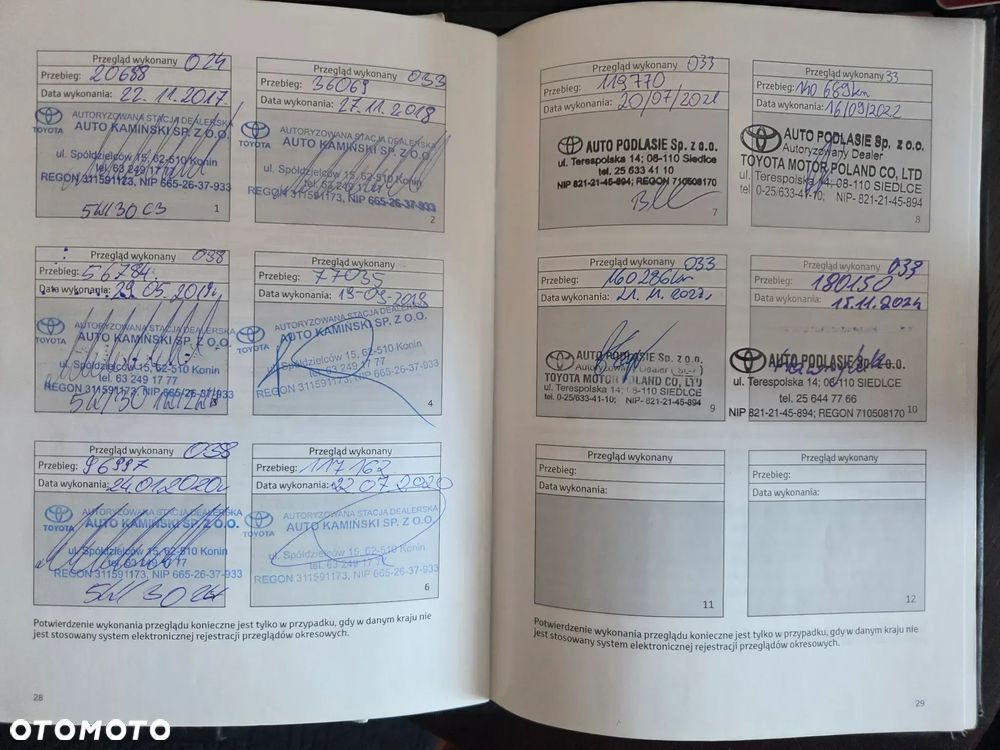 Przegląd wykonany 024
Przebieg: 20688
Data wykonania: 22.11.2017
TOYOTA
AUTORYZOWANA STACJA DEALERSKA
AUTO KAMIŃSKI SP. Z O.O.
ul. Spółdzielców 15, 62-510 Konin
tel. 63 249 17 77
REGON 311591173, NIP 665-26-37-933
5W30 C3
1
Przegląd wykonany 033
Przebieg: 36069
Data wykonania: 27.11.2018
TOYOTA
AUTORYZOWANA STACJA DEALERSKA
AUTO KAMIŃSKI SP. Z O.O.
ul. Spółdzielców 15, 62-510 Konin
tel. 63 249 17 77
REGON 311591173, NIP 665-26-37-933
2
Przegląd wykonany 038
Przebieg: 56784
Data wykonania: 29.05.2019
TOYOTA
AUTORYZOWANA STACJA DEALERSKA
AUTO KAMIŃSKI SP. Z O.O.
ul. Spółdzielców 15, 62-510 Konin
tel. 63 249 17 77
REGON 311591173, NIP 665-26-37-933
5W30
Przegląd wykonany
Przebieg: 77035
Data wykonania: 19-09-2019
TOYOTA
AUTORYZOWANA STACJA DEALERSKA
AUTO KAMIŃSKI SP. Z O.O.
ul. Spółdzielców 15, 62-510 Konin
tel. 63 249 17 77
REGON 311591173, NIP 665-26-37-933
4
Przegląd wykonany 038
Przebieg: 96997
Data wykonania: 24.01.2020r
TOYOTA
AUTORYZOWANA STACJA DEALERSKA
AUTO KAMIŃSKI SP. Z O.O.
ul. Spółdzielców 15, 62-510 Konin
tel. 63 249 17 77
REGON 311591173, NIP 665-26-37-933
5W30
Przegląd wykonany
Przebieg: 117162
Data wykonania: 22.07.2020
TOYOTA
AUTORYZOWANA STACJA DEALERSKA
AUTO KAMIŃSKI SP. Z O.O.
ul. Spółdzielców 15, 62-510 Konin
tel. 63 249 17 77
REGON 311591173, NIP 665-26-37-933
6
Potwierdzenie wykonania przeglądu konieczne jest tylko w przypadku, gdy w danym kraju nie
jest stosowany system elektronicznej rejestracji przeglądów okresowych.
28
Przegląd wykonany 033
Przebieg: 119770
Data wykonania: 20/07/2021
AUTO PODLASIE Sp. z o.o.
ul. Terespolska 14; 08-110 Siedlce
tel. 25 633 41 10
NIP 821-21-45-894; REGON 710508170
7
Przegląd wykonany 33
Przebieg: 140 689km
Data wykonania: 16/09/2022
AUTO PODLASIE Sp. z o.o.
Autoryzowany Dealer
TOYOTA MOTOR POLAND CO, LTD
ul. Terespolska 14; 08-110 SIEDLCE
tel. 0-25/633-41-10; NIP- 821-21-45-894
8
Przegląd wykonany 033
Przebieg: 160286km
Data wykonania: 21.11.2023
AUTO PODLASIE Sp. z o.o.
Autoryzowany Dealer
TOYOTA MOTOR POLAND CO, LTD
ul. Terespolska 14; 08-110 SIEDLCE
tel. 0-25/633-41-10; NIP- 821-21-45-894
9
Przegląd wykonany 033
Przebieg: 180150
Data wykonania: 15.11.2024
AUTO PODLASIE Sp. z o.o.
ul. Terespolska 14; 08-110 SIEDLCE
tel. 25 644 77 66
NIP 821-21-45-894; REGON 710508170
10
Przegląd wykonany
Przebieg:
Data wykonania:
11
Przegląd wykonany
Przebieg:
Data wykonania:
12
Potwierdzenie wykonania przeglądu konieczne jest tylko w przypadku, gdy w danym kraju nie
jest stosowany system elektronicznej rejestracji przeglądów okresowych.
29
OTOMOTO